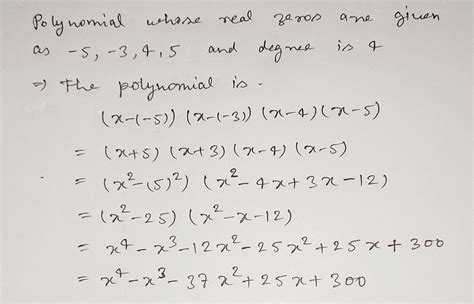 Polynomial whose real zeros are given
as -5, -3, 4, 5 and degree is 4
⇒ The polynomial is.
(x-(-5)) (x-(-3)) (x-4) (x-5)
= (x+5) (x+3) (x-4) (x-5)
= (x²-(5)²) (x²-4x+3x-12)
= (x²-25) (x²-x-12)
= x⁴-x³-12x²-25x²+25x+300
= x⁴-x³-37x²+25x+300